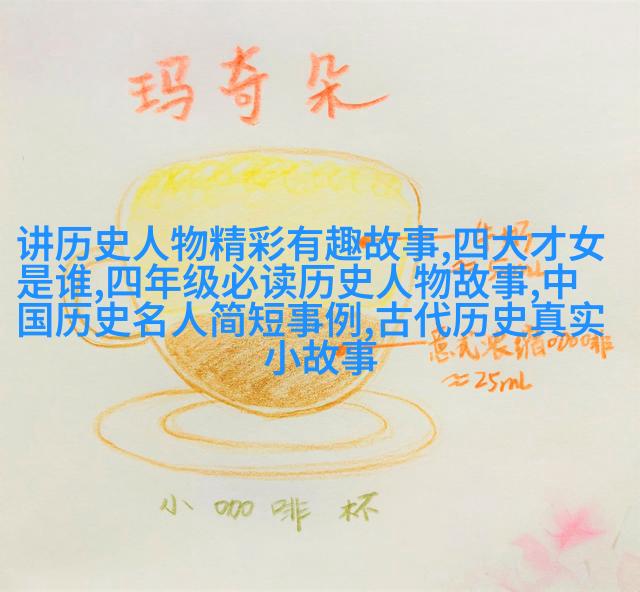 玛奇朵
讲历史人物精彩有趣故事,四大才女
是谁,四年级必读历史人物故事,中
国历史名人简短事例,古代历史真实
小故事
意式浓缩咖啡
≈25mL
小咖啡杯